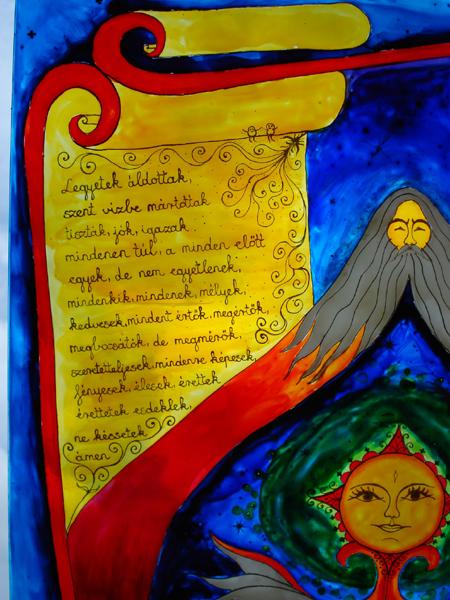 Legyetek áldottak,
szent vizbe mártottak
tiszták, jók, igazak
mindenen túl, a minden előtt
egyek, de nem egyetlenek,
mindenkik, mindenek, mélyek,
kedvesek, mindent értők, megértők,
megbocsátók, de megmérők,
szeretetteljesek, mindenre képesek,
fényesek, élesek, érettek
érettetek esdeklek,
ne késsetek
ámen